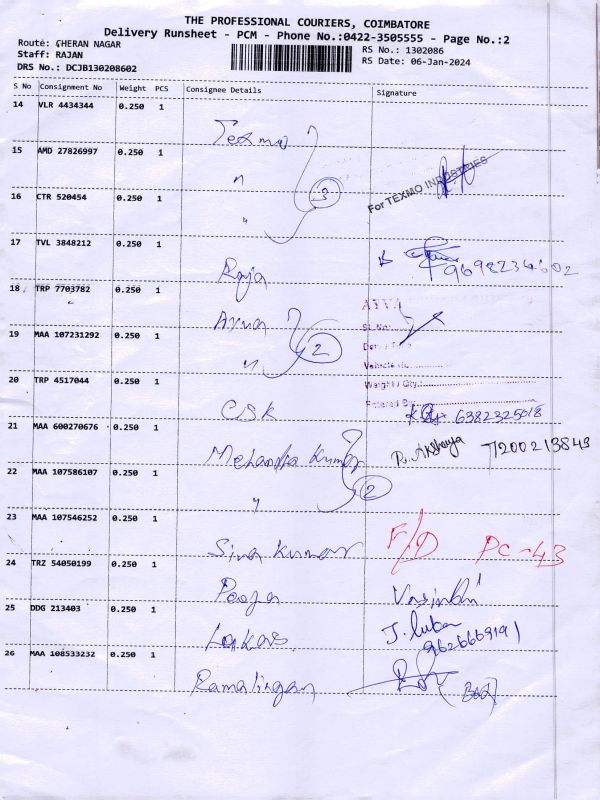 THE PROFESSIONAL COURIERS, COIMBATORE
Delivery Runsheet - PCM - Phone No.:0422-3505555 - Page No.:2
Route: CHERAN NAGAR
RS No.: 1302086
Staff: RAJAN
RS Date: 06-Jan-2024
DRS No.: DCJB130208602
S No Consignment No Weight PCS Consignee Details Signature
14 VLR 4434344 0.250 1 Texmo
15 AMD 27826997 0.250 1 "
3
For TEXMO INDUSTRIES
16 CTR 520454 0.250 1 "
17 TVL 3848212 0.250 1 Raja
18 TRP 7703782 0.250 1 Ayya
AYYA
Sl. No:
19 MAA 107231292 0.250 1 "
2
Vehicle No.
Weight / Qty.:
Entered By:
20 TRP 4517044 0.250 1 CSK 6382325618
21 MAA 600270676 0.250 1 Kumar Akshaya 7200213849
22 MAA 107586107 0.250 1 "
2
23 MAA 107546252 0.250 1 Siva Kumar F/D PC-43
24 TRZ 54050199 0.250 1 Pooja
25 DDG 213403 0.250 1
26 MAA 108533232 0.250 1 Ramalingam